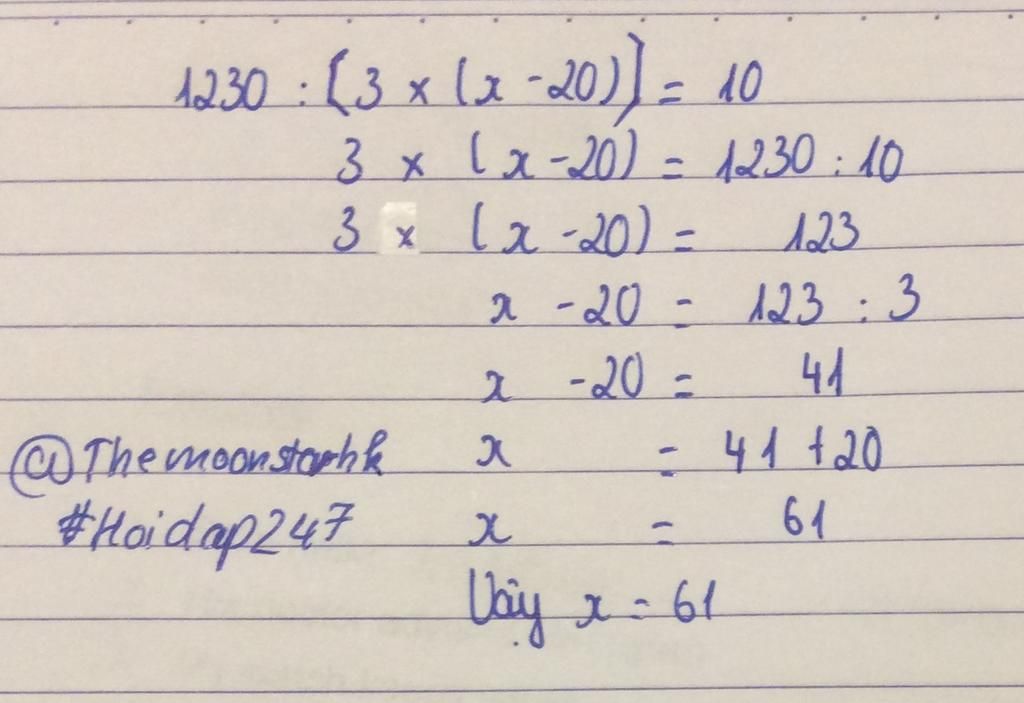 1230 : [3 × (x - 20)] = 10
3 × (x - 20) = 1230 : 10
3 × (x - 20) = 123
x - 20 = 123 : 3
x - 20 = 41
@Themoonstarhk x = 41 + 20
#Hoidap247 x = 61
Vậy x = 61